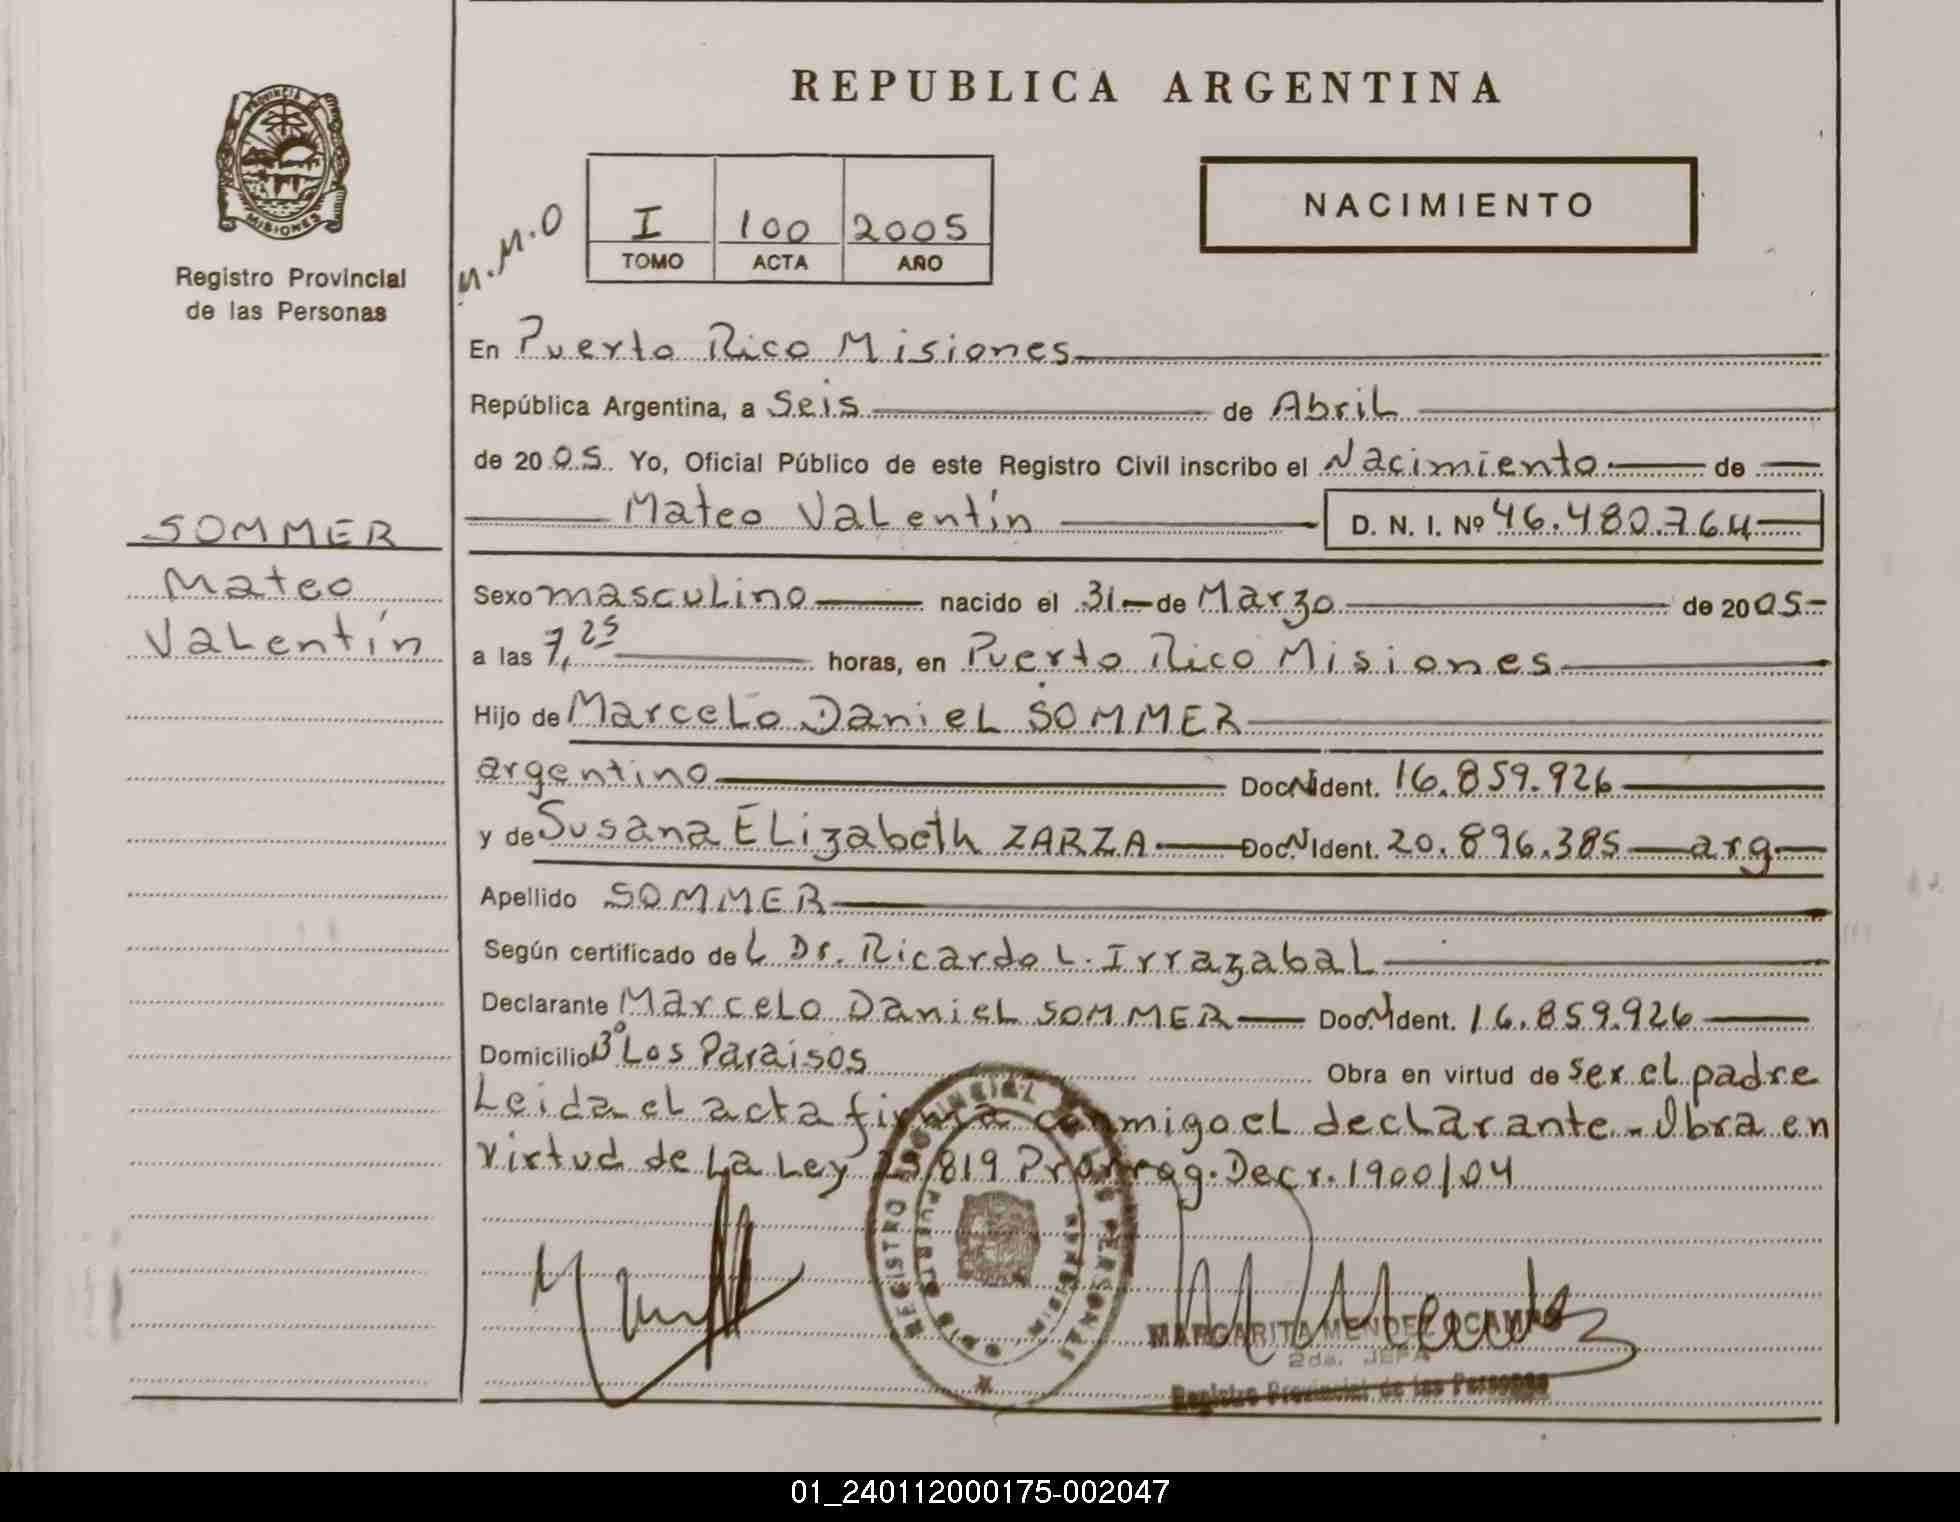 REPUBLICA ARGENTINA
PROVINCIA
MISIONES
Registro Provincial
de las Personas
M.M.O
I 100 2005
TOMO ACTA AÑO
NACIMIENTO
En Puerto Rico Misiones
República Argentina, a Seis de Abril
de 2005. Yo, Oficial Público de este Registro Civil inscribo el Nacimiento de
Mateo Valentín D. N. I. Nº 46.480.764
SOMMER
Mateo
Valentín
Sexo masculino nacido el 31 de Marzo de 2005
a las 7,25 horas, en Puerto Rico Misiones
Hijo de Marcelo Daniel SOMMER
argentino Doc. N Ident. 16.859.926
y de Susana Elizabeth ZARZA Doc. N Ident. 20.896.385 arg
Apellido SOMMER
Según certificado del Dr. Ricardo L. Irrazabal
Declarante Marcelo Daniel SOMMER Doc. N Ident. 16.859.926
Domicilio Bº Los Paraisos Obra en virtud de ser el padre
Leida el acta firma conmigo el declarante. Obra en
virtud de la Ley 25/819 Prorrog. Decr. 1900/04
REGISTRO PROVINCIAL DE LAS PERSONAS
PUERTO RICO
MARGARITA MENDEZ OCAMPO
2da. JEFA
Registro Provincial de las Personas
01_240112000175-002047